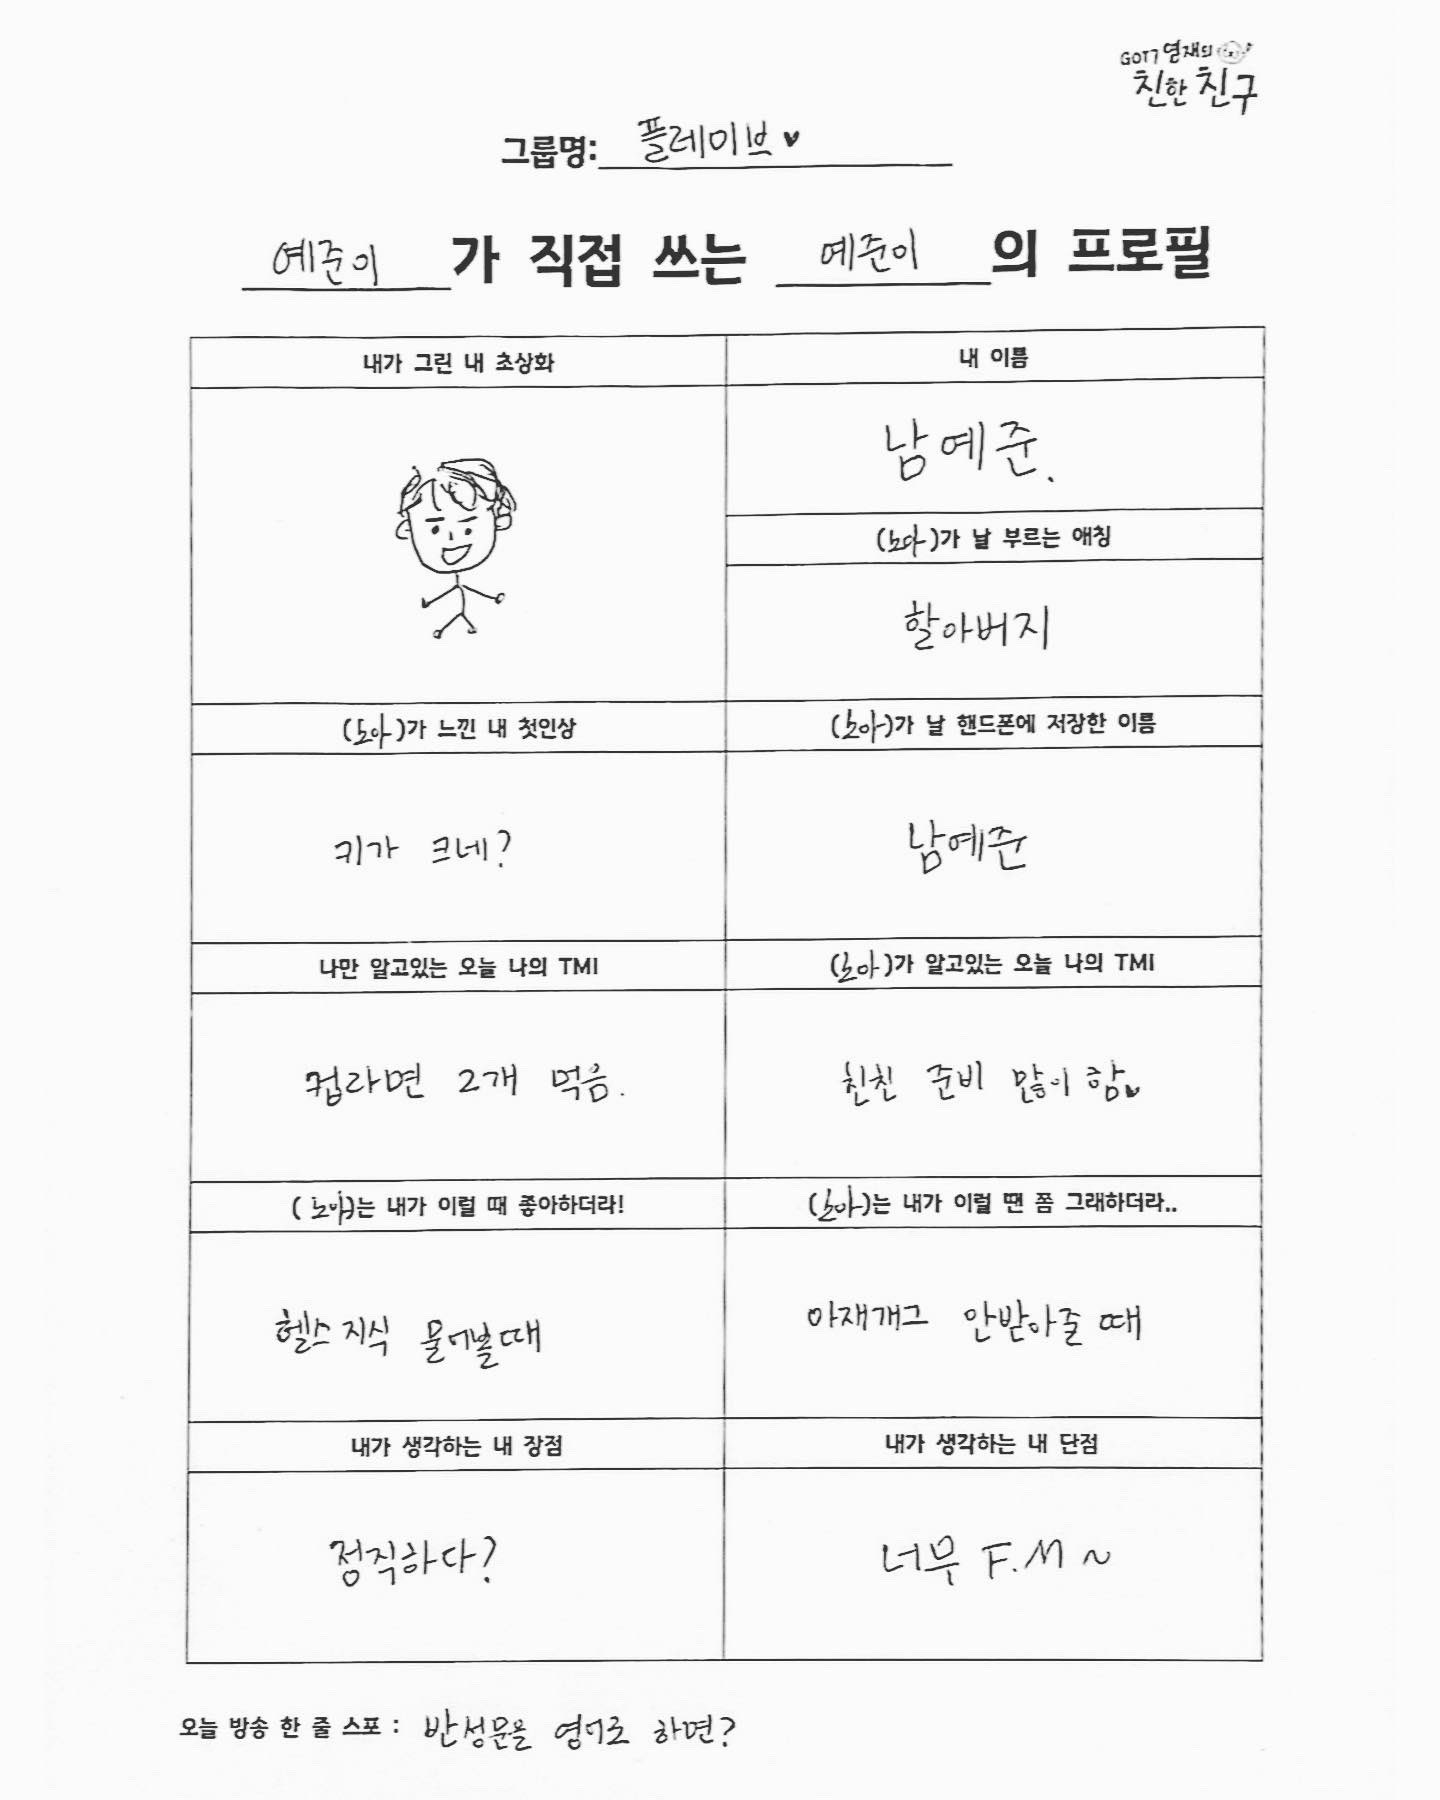 GOT7 영재의
친한친구
그룹명: 플레이브♥
예준이가 직접 쓰는 예준이의 프로필
내가 그린 내 초상화
내 이름
남예준.
(노아)가 날 부르는 애칭
할아버지
(노아)가 느낀 내 첫인상
(노아)가 날 핸드폰에 저장한 이름
키가 크네?
남예준
나만 알고있는 오늘 나의 TMI
(노아)가 알고있는 오늘 나의 TMI
컵라면 2개 먹음.
친친 준비 많이 함♥
(노아)는 내가 이럴 때 좋아하더라!
(노아)는 내가 이럴 땐 쫌 그래하더라..
헬스 지식 물어볼때
아재개그 안받아줄 때
내가 생각하는 내 장점
내가 생각하는 내 단점
정직하다?
너무 F.M ~
오늘 방송 한 줄 스포 : 반성문을 영어로 하면?